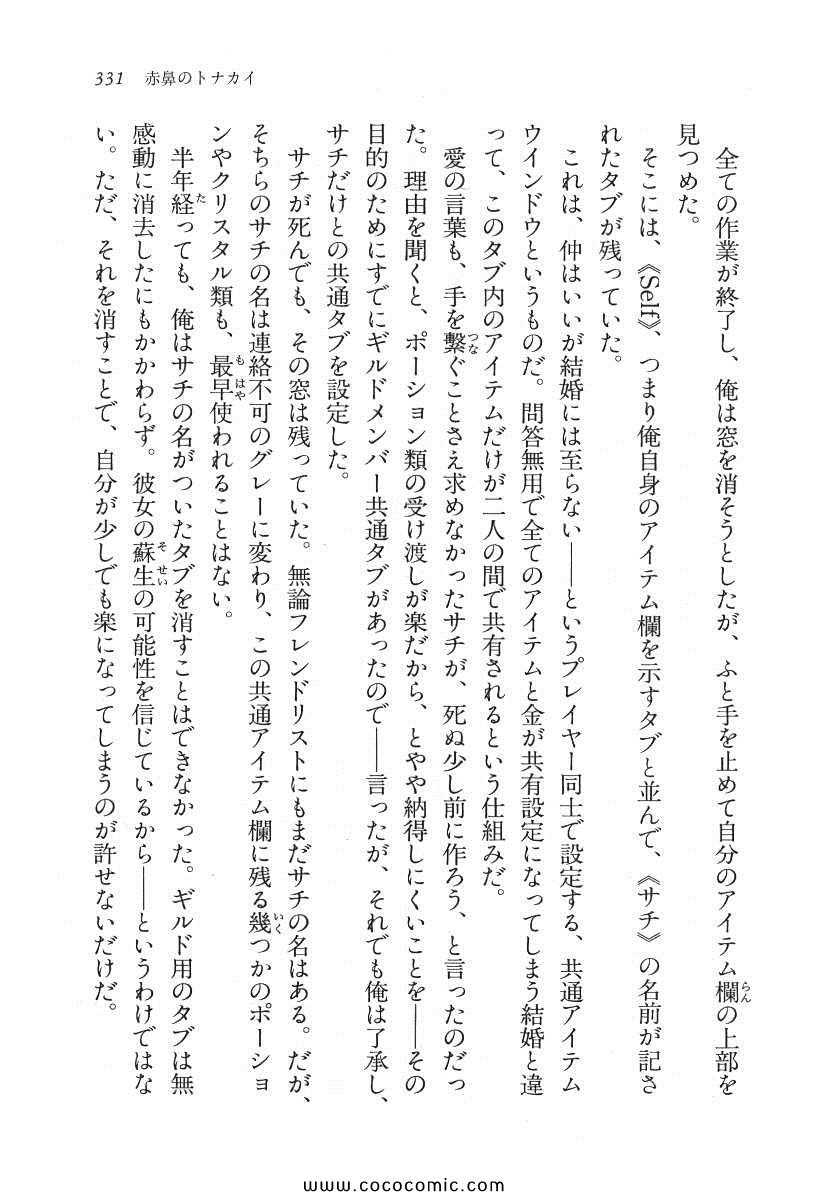 331　赤鼻のトナカイ
　全ての作業が終了し、俺は窓を消そうとしたが、ふと手を止めて自分のアイテム欄の上部を
見つめた。
　そこには、《Self》、つまり俺自身のアイテム欄を示すタブと並んで、《サチ》の名前が記さ
れたタブが残っていた。
　これは、仲はいいが結婚には至らない——というプレイヤー同士で設定する、共通アイテム
ウインドウというものだ。問答無用で全てのアイテムと金が共有設定になってしまう結婚と違
って、このタブ内のアイテムだけが二人の間で共有されるという仕組みだ。
　愛の言葉も、手を繋ぐことさえ求めなかったサチが、死ぬ少し前に作ろう、と言ったのだっ
た。理由を聞くと、ポーション類の受け渡しが楽だから、とやや納得しにくいことを——その
目的のためにすでにギルドメンバー共通タブがあったので——言ったが、それでも俺は了承し、
サチだけとの共通タブを設定した。
　サチが死んでも、その窓は残っていた。無論フレンドリストにもまだサチの名はある。だが、
そちらのサチの名は連絡不可のグレーに変わり、この共通アイテム欄に残る幾つかのポーショ
ンやクリスタル類も、最早使われることはない。
　半年経っても、俺はサチの名がついたタブを消すことはできなかった。ギルド用のタブは無
感動に消去したにもかかわらず。彼女の蘇生の可能性を信じているから——というわけではな
い。ただ、それを消すことで、自分が少しでも楽になってしまうのが許せないだけだ。
www.cococomic.com